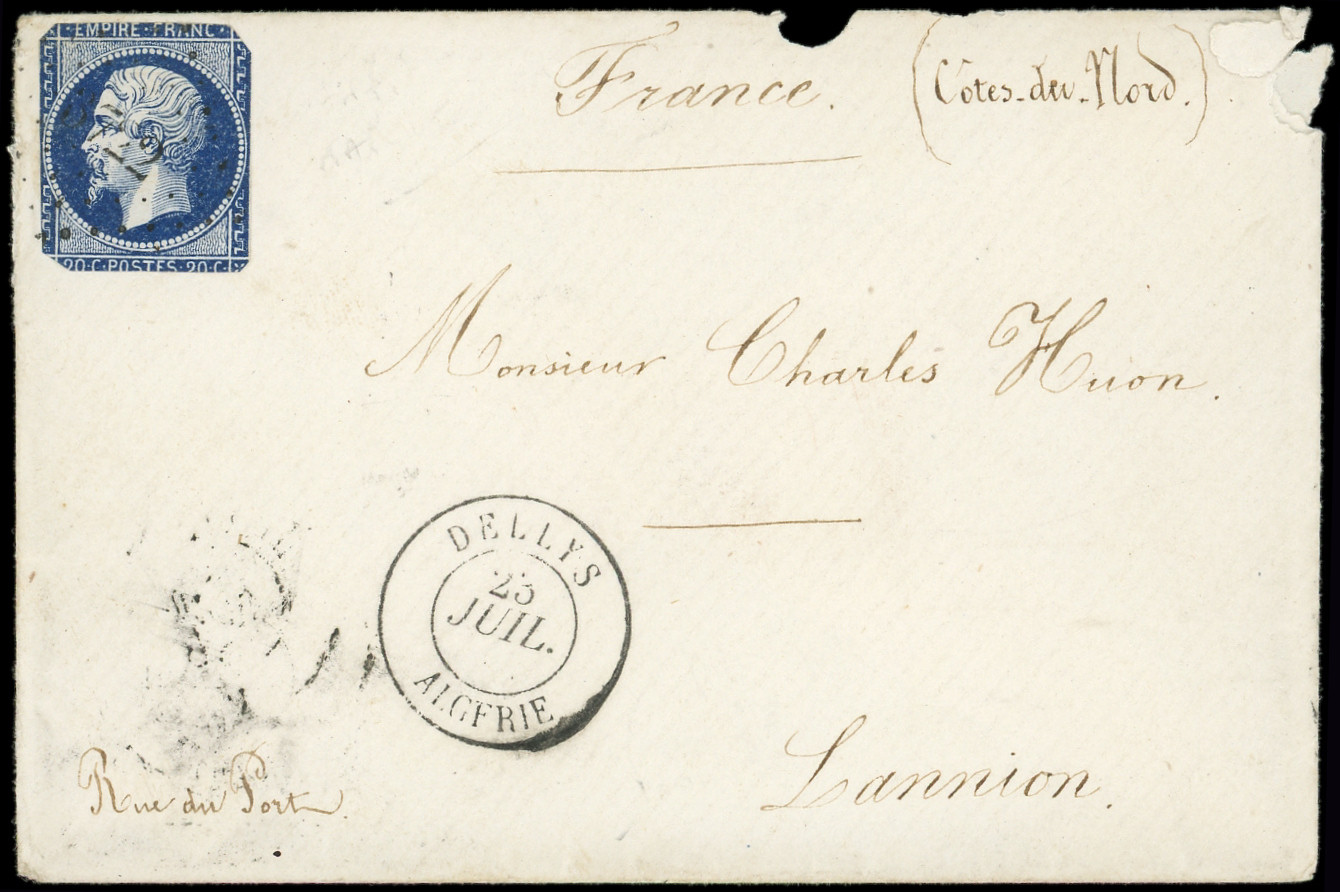 EMPIRE FRANC
20·C·POSTES·20·C·
France. (Côtes-du-Nord.)
Monsieur Charles Huon.
DELLYS
25
JUIL.
ALGERIE
Lannion.
Rue du Port